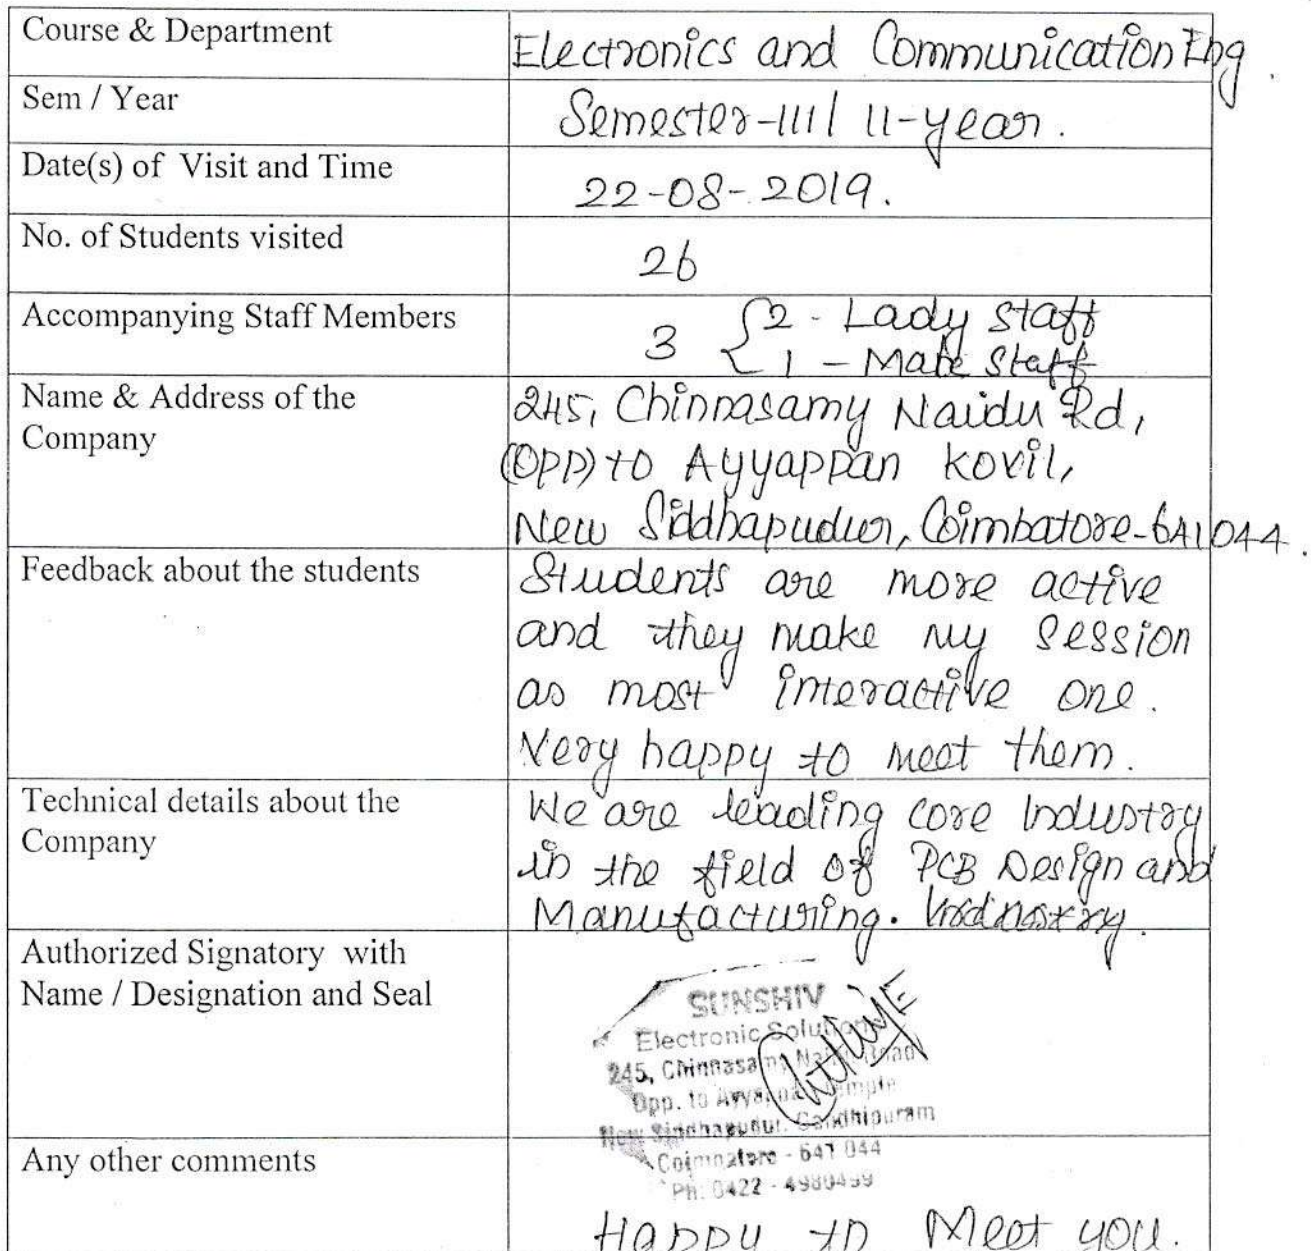 Course & Department
Electronics and Communication Eng.
Sem / Year
Semester-III / II-year.
Date(s) of Visit and Time
22-08-2019.
No. of Students visited
26
Accompanying Staff Members
3 { 2 - Lady staff
1 - Male Staff
Name & Address of the
Company
245, Chinnasamy Naidu Rd,
(Opp) to Ayyappan kovil,
New Siddhapudur, Coimbatore-641044.
Feedback about the students
Students are more active
and they make my session
as most interactive one.
Very happy to meet them.
Technical details about the
Company
We are leading core Industry
in the field of PCB Design and
Manufacturing.
Authorized Signatory with
Name / Designation and Seal
SUNSHIV
Electronic Solutions
245, Chinnasamy Naidu Road
Opp. to Ayyappan Temple
New Siddhapudur, Gandhipuram
Coimbatore - 641 044
Ph: 0422 - 4980499
Any other comments
Happy to Meet you.